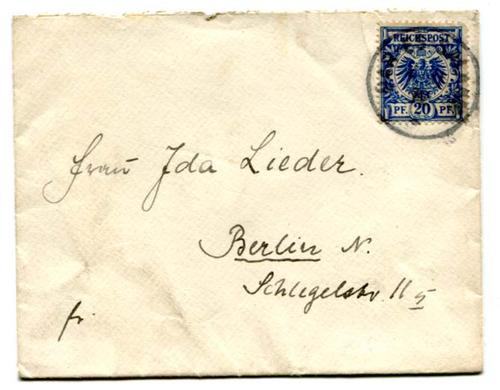 REICHSPOST
PF. 20 PF.
Frau Ida Lieder.
Berlin N.
Schlegelstr. 11 5
fr.